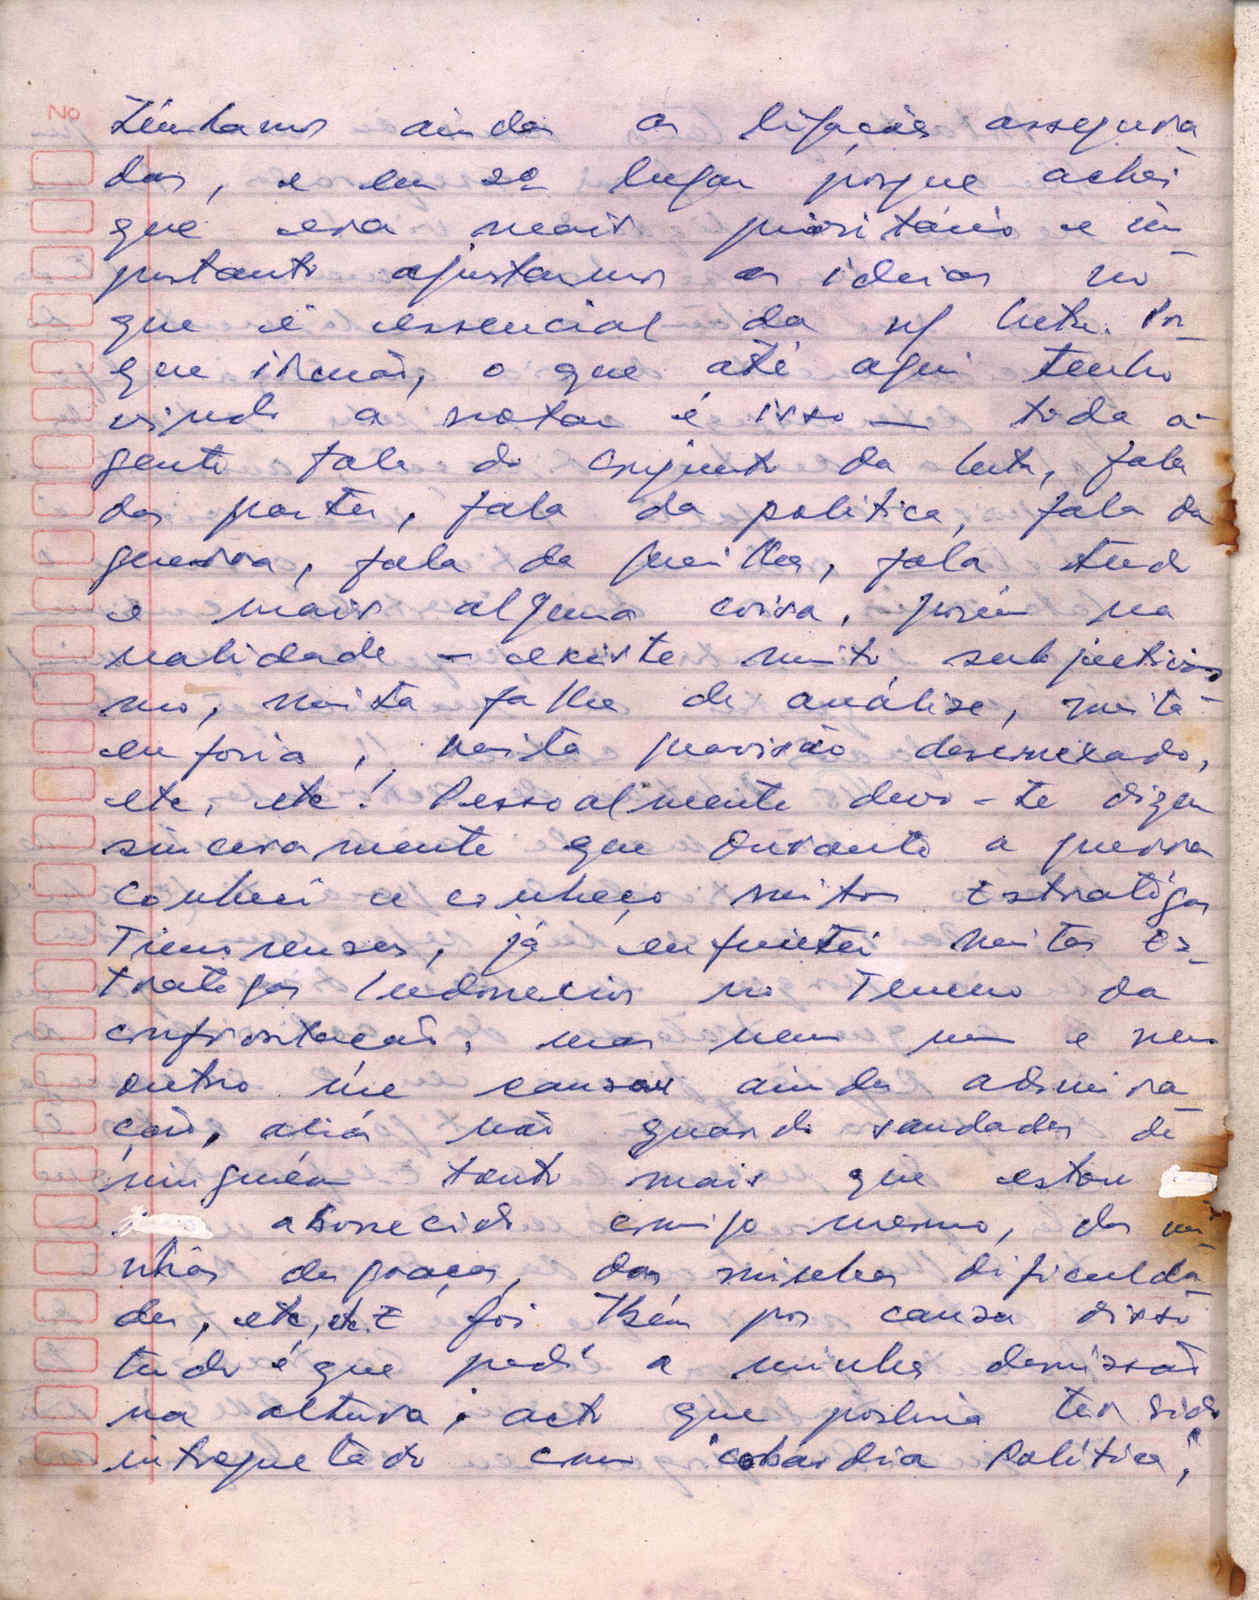 Nº
Tínhamos ainda as ligações assegura
das, e em 2º lugar porque achei
que era mais prioritário e im
portante ajustarmos as ideias no
que é essencial da n/ luta. Por
que irmão, o que até aqui tenho
vindo a notar é isso — toda a
gente fala do conjunto da luta, fala
das partes, fala da política, fala da
guerra, fala da guerrilha, fala tudo
e mais alguma coisa, porém na
realidade — existe muito subjectivis
mo, muita falha de análise, muita
euforia, muita previsão
etc, etc! Pessoalmente devo-te dizer
sinceramente que durante a guerra
conheci e conheço muitos Estratégas
Timorenses, já enfrentei muitos Es-
trategas Indonésios no Terreno da
confrontação, mas nem um e nem
outro me causou ainda admira
ção, aliás não guardo saudades de
ninguém tanto mais que estou
aborrecido comigo mesmo, das mi
nhas desgraças, das minhas dificulda
des, etc, etc. E foi tbém por causa disso
tudo é que pedi a minha demissão
na altura; acto que poderia ter sido
interpretado como "cobardia Política",